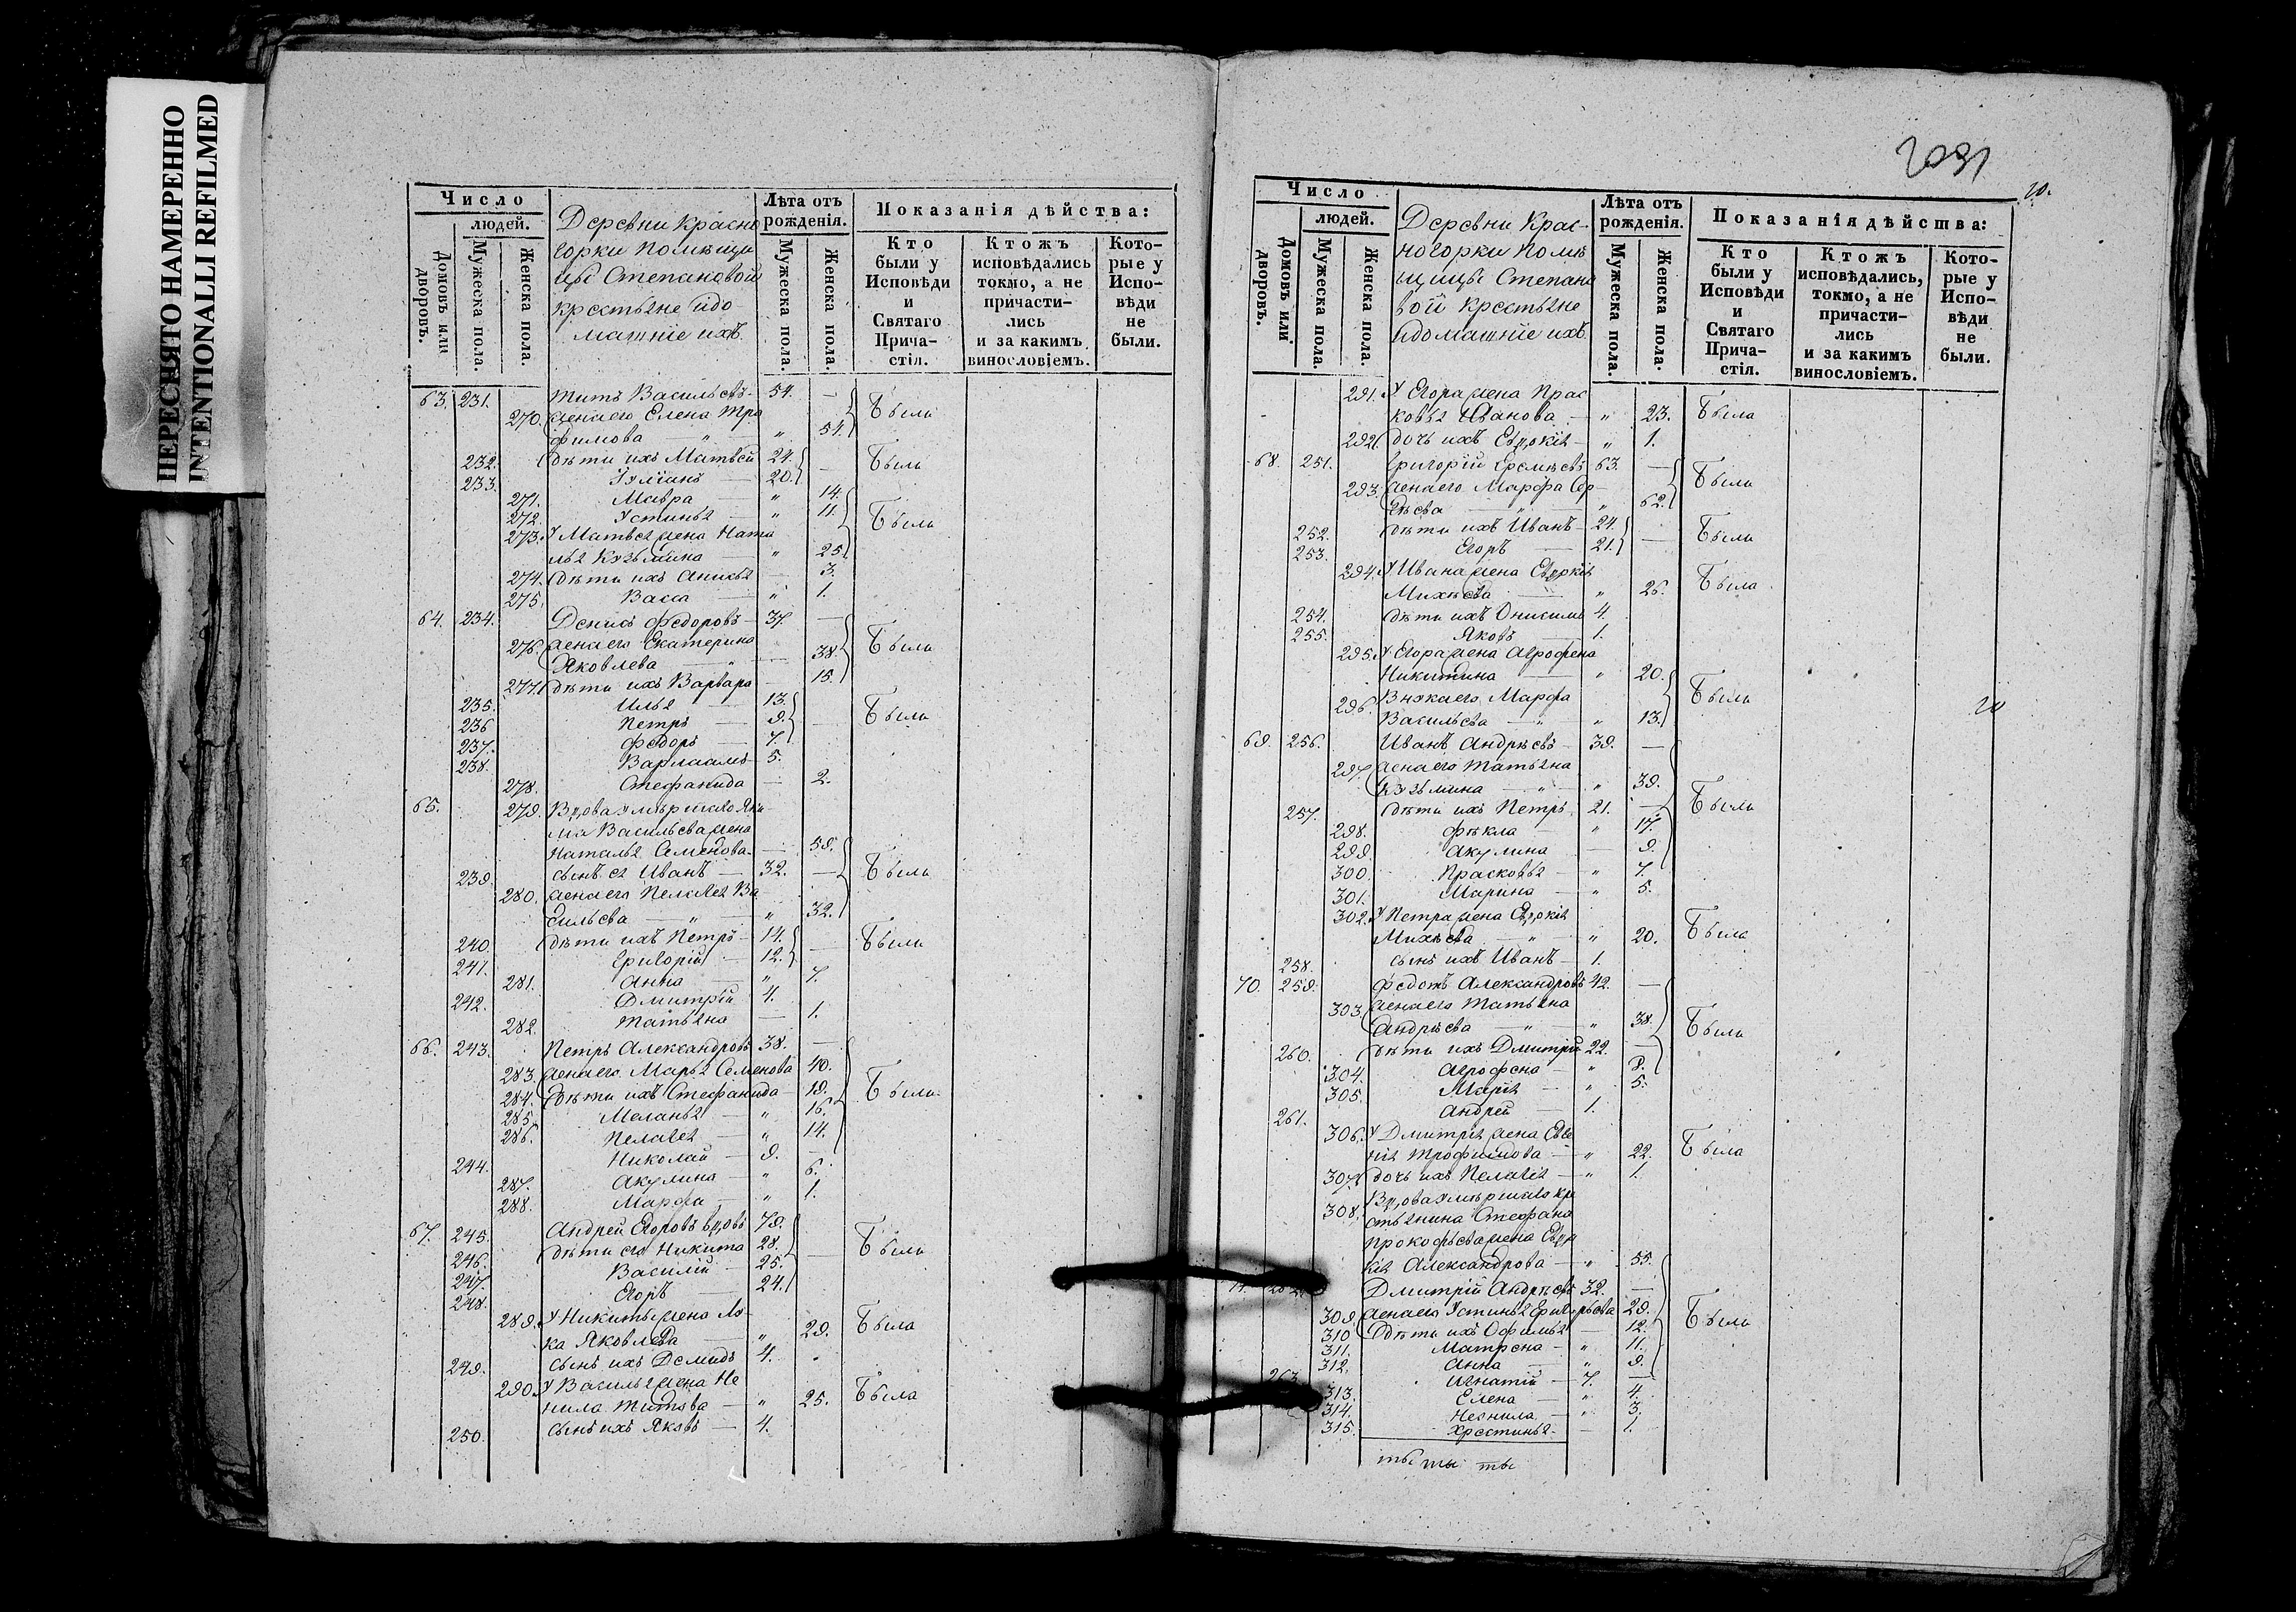 ПЕРЕСНЯТО НАМЕРЕННО
INTENTIONALLI REFILMED
Число
людей.
Домовъ или дворовъ.
Мужеска пола.
Женска пола.
Деревни Красно
горки помѣщи
цы Степановой
крестьяне и до
машніе ихъ.
Лѣта отъ рожденія.
Мужеска пола.
Женска пола.
Показанія дѣйства:
Кто были у Исповѣди и Святаго Прича-стія.
Ктожъ исповѣдались токмо, а не причасти-лись и за какимъ винословіемъ.
Кото-рые у Испо-вѣди не были.
63. 231. Титъ Васильевъ 54. —
270. жена его Елена Тро
фимова — „ — „ 54. Были
232. дѣти ихъ Матвей 24. — Были
233. Іуліанъ — 20.
271. Мавра — „ 14.
272. Устинья — „ 11. Были
273. У Матвея жена Ната
лья Кузьмина — „ 25.
274. дѣти ихъ Анисья — 3.
275. Васса — „ 1.
64. 234. Денисъ Федоровъ — 37. —
276. жена его Екатерина
Яковлева — „ — 38. Были
277. дѣти ихъ Варвара — 15.
235. Илья — 13.
236 Петръ — 9. — Были
237. Федоръ — 7.
238. Варлаамъ — 5.
278. Стефанида — 2.
65. 279. Вдова умершаго Яки
ма Васильева жена
Наталья Семенова — 59.
239. сынъ ея Иванъ — 32. — Были
280. жена его Пелагея Ва
сильева — „ — „ 32.
240. дѣти ихъ Петръ — 14. — Были
241. Григорій — 12.
281. Анна — „ 7.
242. Дмитрій 4.
282. Татьяна — 1.
66. 243. Петръ Александровъ 38. —
283. жена его Марья Семенова 40.
284. дѣти ихъ Стефанида — 19. Были
285. Меланья — „ 16.
286. Пелагея — „ 14.
244. Николай — 9. —
287. Акулина — „ 6.
288. Марфа — „ 1.
67. 245. Андрей Егоровъ вдовъ 79.
246. дѣти его Никита 28. — Были
247. Василій — 25.
248. Егоръ — 24.
289. У Никиты жена Лу-
ка Яковлева — „ 29. Была
249. сынъ ихъ Демидъ 4.
290. У Василья жена Не
нила Титова — „ 25. Была
250. сынъ ихъ Яковъ — 4.
2091
20.
Число
людей.
Домовъ или дворовъ.
Мужеска пола.
Женска пола.
Деревни Крас-
ногорки помѣ
щицы Степано
вой крестьяне
и домашніе ихъ
Лѣта отъ рожденія.
Мужеска пола.
Женска пола.
Показанія дѣйства:
Кто были у Исповѣди и Святаго Прича-стія.
Ктожъ исповѣдались, токмо, а не причасти-лись и за какимъ винословіемъ.
Кото-рые у Испо-вѣди не были.
291. У Егора жена Прас
ковья Иванова — „ 23. Была
292. дочь ихъ Евдокія — „ 1.
68. 251. Григорій Еремѣевъ 63. —
293. жена его Марфа Сер-
гѣева — „ 62. Были
252. дѣти ихъ Иванъ — 24. — Были
253. Егоръ — 21.
294. У Ивана жена Евдокія
Михѣева — „ 26. Была
254. дѣти ихъ Онисимъ 4.
255. Яковъ — 1.
295. У Егора жена Агрофена
Никитина — „ 20.
296. Внука его Марфа Были
Васильева — „ — „ 13.
20
69. 256. Иванъ Андрѣевъ — 39. —
297. жена его Татьяна
Кузьмина — „ — „ 39.
257. дѣти ихъ Петръ 21. — Были
298. Фекла — „ 17.
299. Акулина — 9.
300. Прасковья — „ 7.
301. Марина — „ 5.
302. У Петра жена Евдокія
Михѣева — „ — „ 20. Была
258. сынъ ихъ Иванъ — 1.
70. 259. Федотъ Александровъ 42. —
303. жена его Татьяна
Андрѣева — „ — „ 38. Были
260. дѣти ихъ Дмитрій 22. —
304. Агрофена — „ 8.
305. Марія — „ 5.
261. Андрей — 1.
306. У Дмитрія жена Евге
нія Трофимова — „ 22. Была
307. дочь ихъ Пелагея — „ 1.
308. Вдова умершаго кре
стьянина Стефана
Прокофьева жена Евдо
кія Александрова — „ 55.
Дмитрій Андрѣевъ 32. —
309. жена его Устинья Григорьева 29. Были
310 дѣти ихъ Офимья — 12.
311. Матрена — „ 11.
312. Анна — „ 9.
263. Игнатій — 7. —
313. Елена — „ 4.
314. Неонила — „ 3.
315. Хрестинья — 1.
ты ты ты